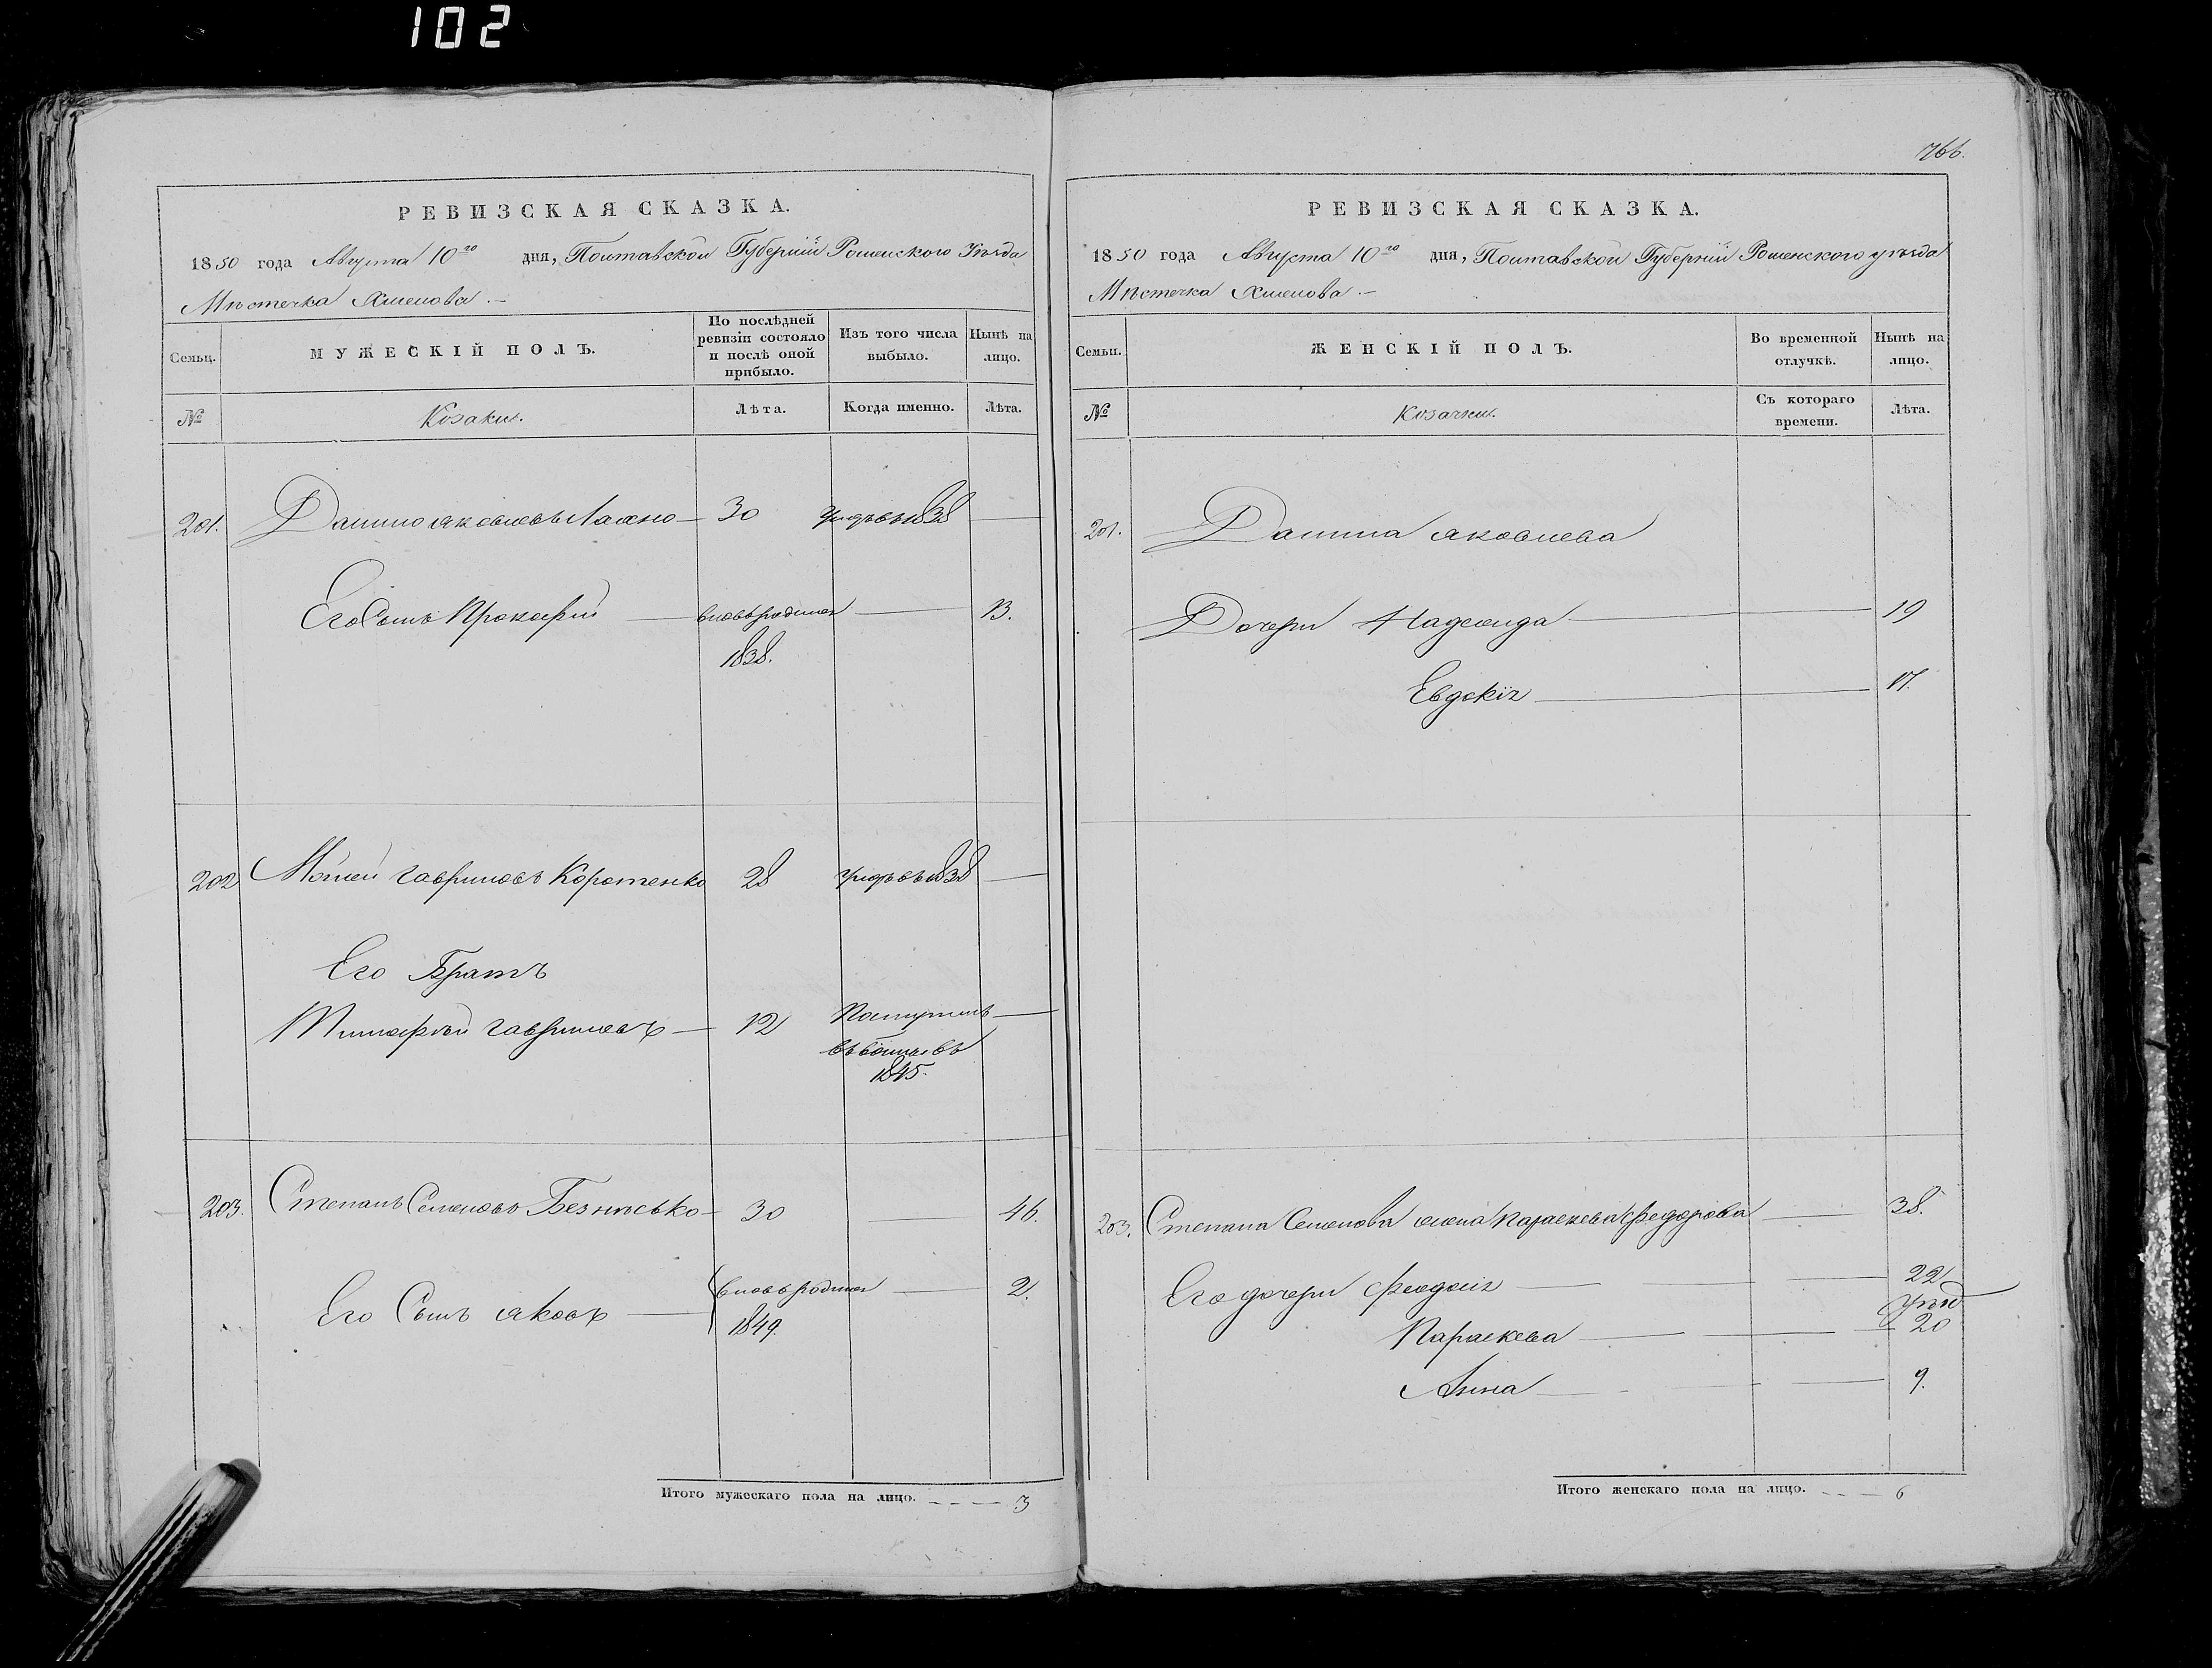 102
РЕВИЗСКАЯ СКАЗКА.
1850 года Августа 10го дня, Полтавской Губерніи Роменского Уѣзда
Мѣстечка Хмелова.-
Семьи. МУЖЕСКІЙ ПОЛЪ. По послѣдней ревизіи состояло и послѣ оной прибыло. Изъ того числа выбыло. Нынѣ на лицо.
№ Козаки. Лѣта. Когда именно. Лѣта.
201. Данило Яковлевъ Лахно 30 1838
Его Сынъ Прокофій вновьрожден 13.
1838.
202 Мойсей Гавриловъ Коротенко 28 1838
Его Братъ
Тимофѣй Гавриловъ 12 Поступилъ
въ
1845.
203. Степанъ Семеновъ Безнисько 30 46.
Его Сынъ Яковъ вновьрожден 2.
1849.
Итого мужескаго пола на лицо. 3
766.
РЕВИЗСКАЯ СКАЗКА.
1850 года Августа 10го дня, Полтавской Губерніи Роменского уѣзда
Мѣстечка Хмелова.-
Семьи. ЖЕНСКІЙ ПОЛЪ. Во временной отлучкѣ. Нынѣ на лицо.
№ Козачки. Съ котораго времени. Лѣта.
201. Данила Яковлева
Дочери Надежда 19
Евдокія 17.
203. Степана Семенова жена Параскева Федорова 38.
Его дочери Феодосія 22
Параскева 20
Анна 9.
Итого женскаго пола на лицо. 6